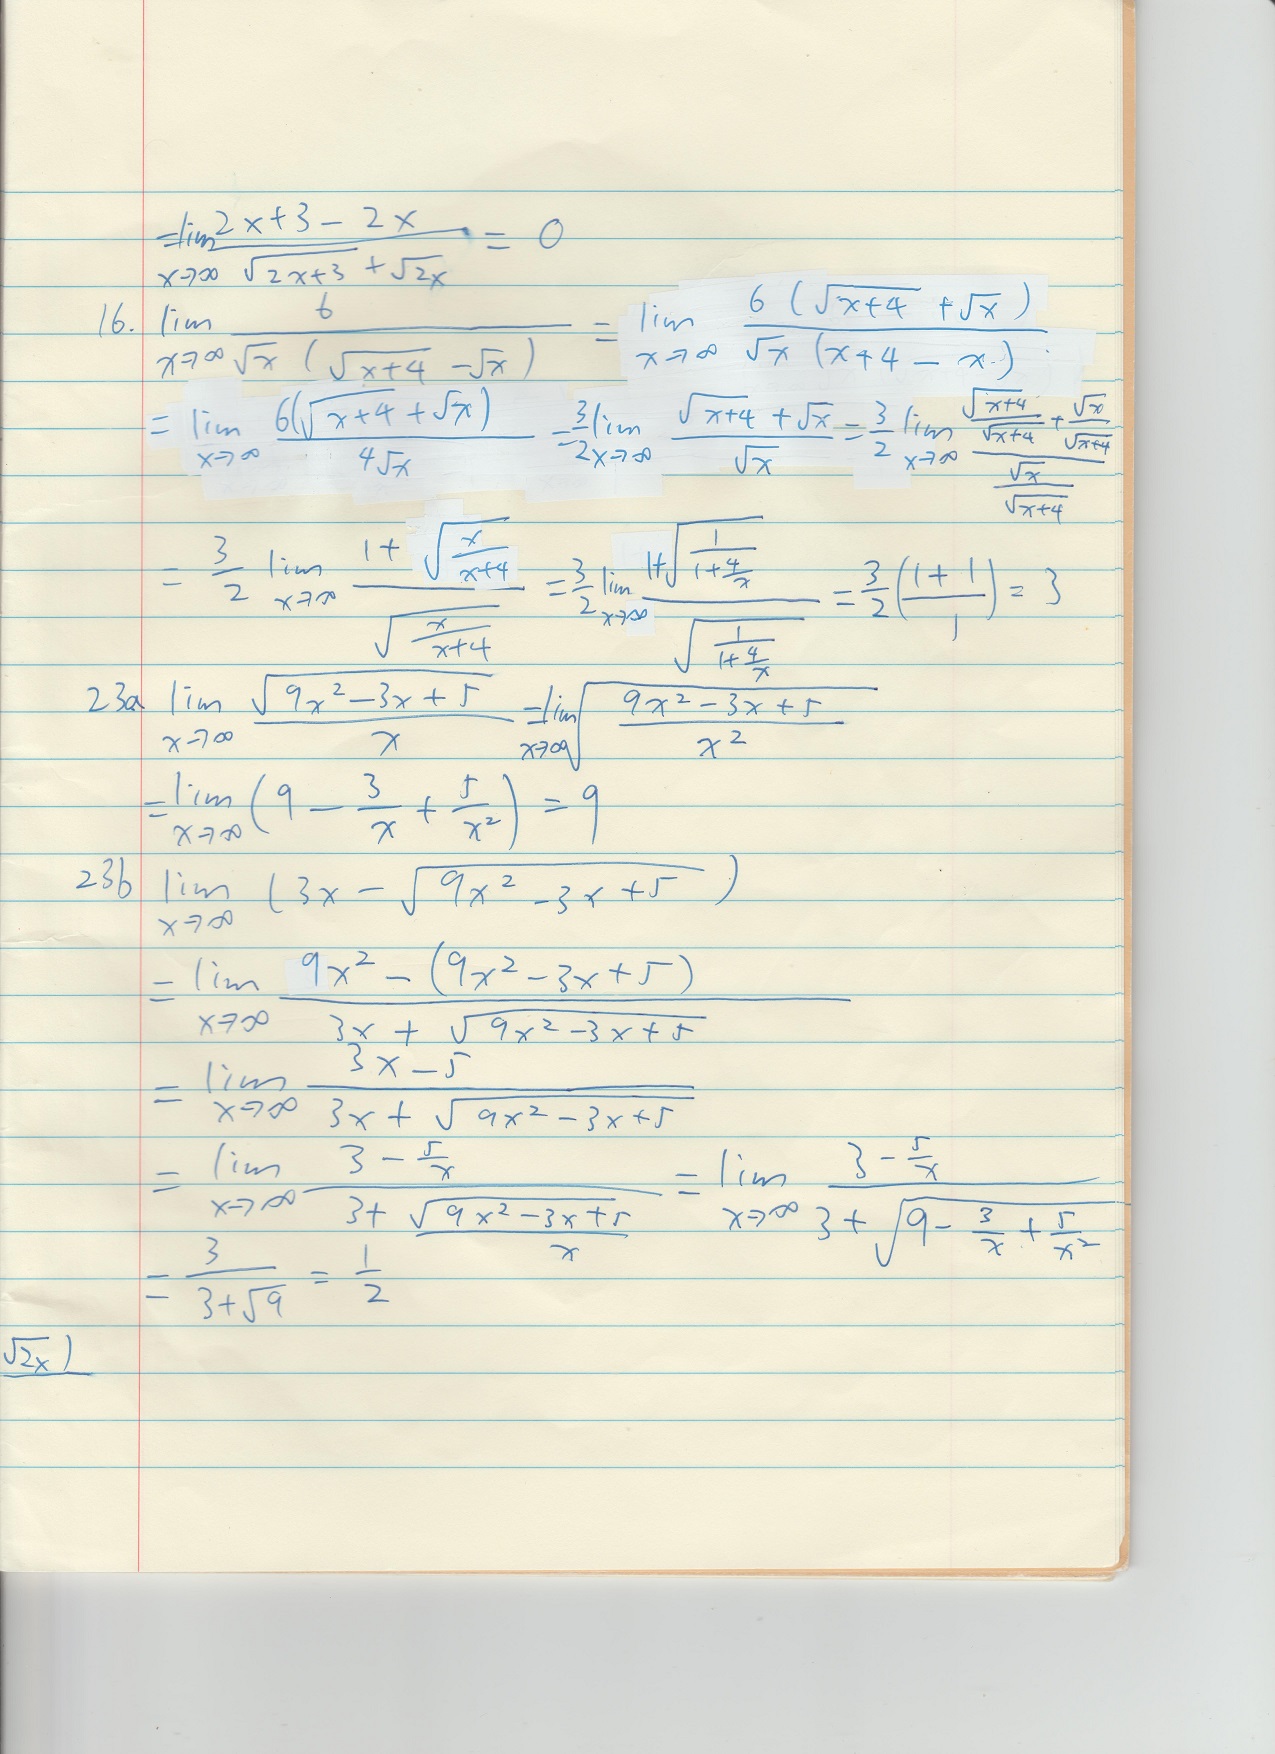 = lim x→∞ (2x+3 − 2x)/(√(2x+3) + √(2x)) = 0
16. lim x→∞ 6/(√x (√(x+4) − √x)) = lim x→∞ 6(√(x+4) + √x)/(√x (x+4 − x))
= lim x→∞ 6(√(x+4) + √x)/(4√x) = 3/2 lim x→∞ (√(x+4) + √x)/√x = 3/2 lim x→∞ (√(x+4)/√(x+4) + √x/√(x+4))/(√x/√(x+4))
= 3/2 lim x→∞ (1 + √(x/(x+4)))/√(x/(x+4)) = 3/2 lim x→∞ (1+√(1/(1+4/x)))/√(1/(1+4/x)) = 3/2 ((1+1)/1) = 3
23a lim x→∞ √(9x² − 3x + 5)/x = lim x→∞ √((9x² − 3x + 5)/x²)
= lim x→∞ (9 − 3/x + 5/x²) = 9
23b lim x→∞ (3x − √(9x² − 3x + 5))
= lim x→∞ (9x² − (9x² − 3x + 5))/(3x + √(9x² − 3x + 5))
= lim x→∞ (3x − 5)/(3x + √(9x² − 3x + 5))
= lim x→∞ (3 − 5/x)/(3 + √(9x² − 3x + 5)/x) = lim x→∞ (3 − 5/x)/(3 + √(9 − 3/x + 5/x²))
= 3/(3+√9) = 1/2
√2x)